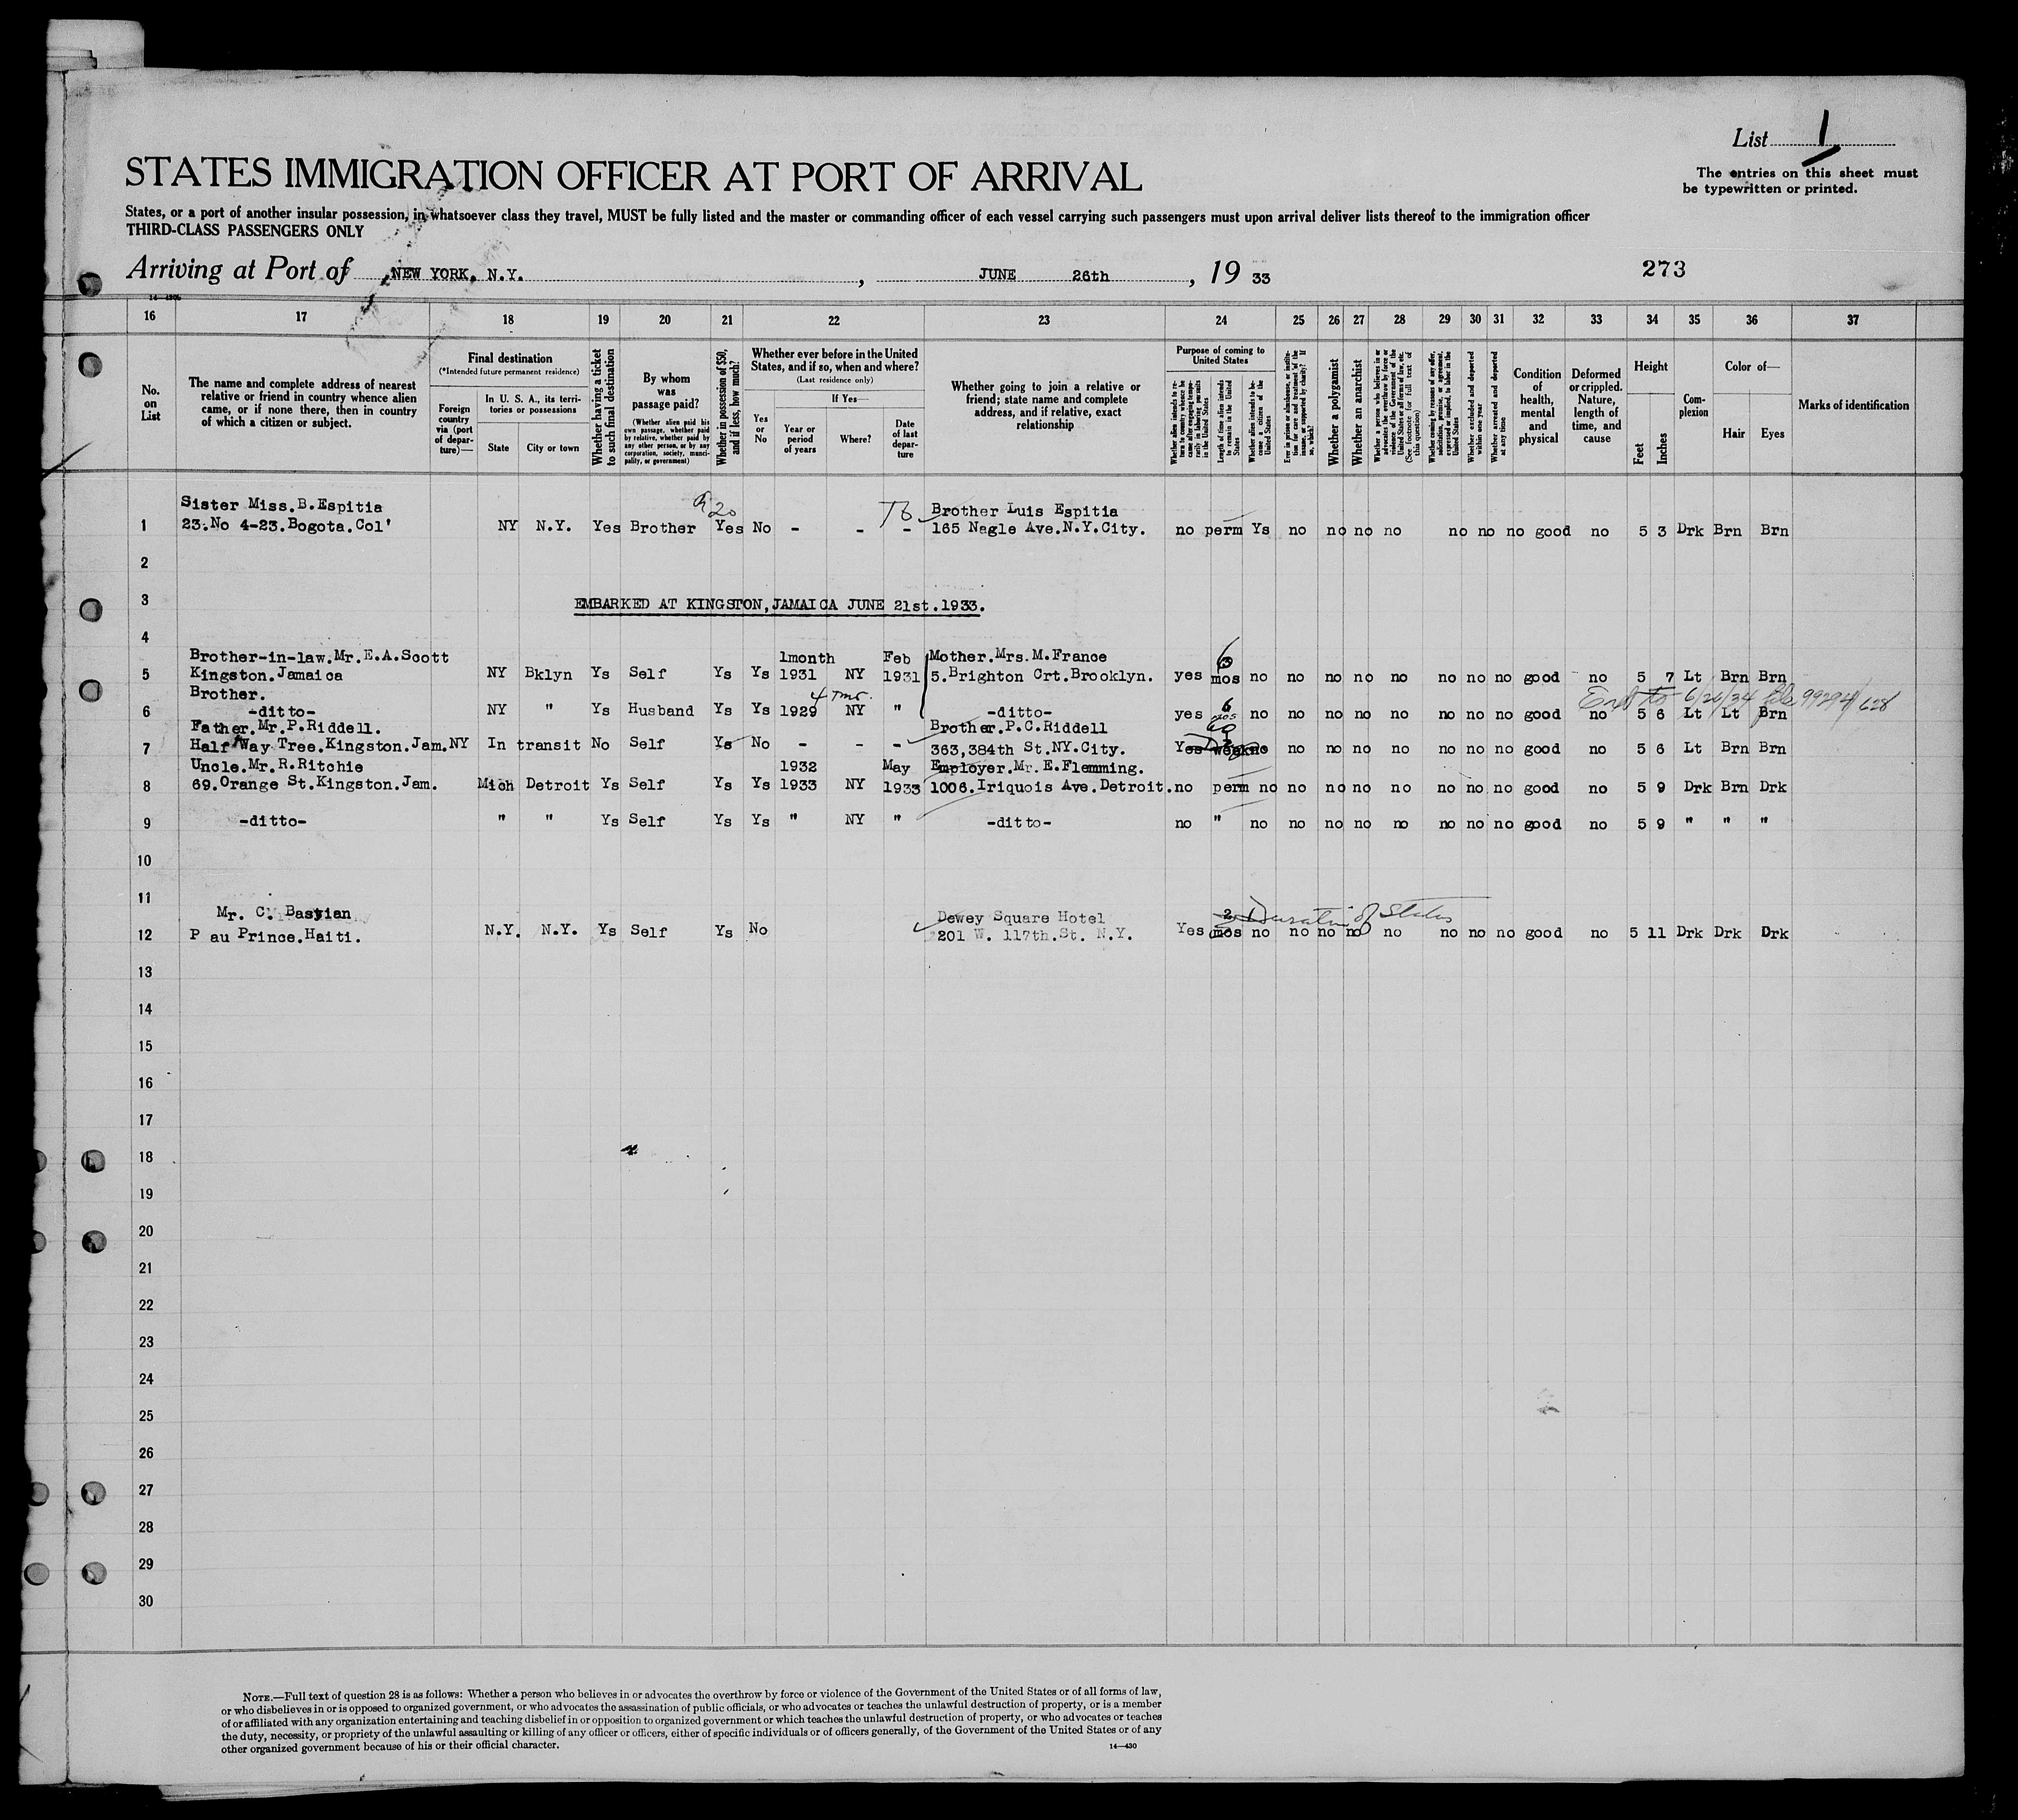 List 1
The entries on this sheet must
be typewritten or printed.
STATES IMMIGRATION OFFICER AT PORT OF ARRIVAL
States, or a port of another insular possession, in whatsoever class they travel, MUST be fully listed and the master or commanding officer of each vessel carrying such passengers must upon arrival deliver lists thereof to the immigration officer
THIRD-CLASS PASSENGERS ONLY
Arriving at Port of NEW YORK, N.Y., JUNE 26th, 19 33
273
16 17 18 19 20 21 22 23 24 25 26 27 28 29 30 31 32 33 34 35 36 37
No. on List
The name and complete address of nearest relative or friend in country whence alien came, or if none there, then in country of which a citizen or subject.
Final destination
(*Intended future permanent residence)
Foreign country via (port of departure)—
In U. S. A., its territories or possessions
State
City or town
Whether having a ticket to such final destination
By whom was passage paid?
(Whether alien paid his own passage, whether paid by relative, whether paid by any other person, or by any corporation, society, municipality, or government)
Whether in possession of $50, and if less, how much?
Whether ever before in the United States, and if so, when and where?
(Last residence only)
Yes or No
If Yes—
Year or period of years
Where?
Date of last departure
Whether going to join a relative or friend; state name and complete address, and if relative, exact relationship
Purpose of coming to United States
Whether alien intends to return to country whence he came after engaging temporarily in laboring pursuits in the United States
Length of time alien intends to remain in the United States
Whether alien intends to become a citizen of the United States
Ever in prison or almshouse, or institution for care and treatment of the insane, or supported by charity? If so, which?
Whether a polygamist
Whether an anarchist
Whether a person who believes in or advocates the overthrow by force or violence of the Government of the United States or all forms of law, etc. (See footnote for full text of this question)
Whether coming by reason of any offer, solicitation, promise, or agreement, expressed or implied, to labor in the United States
Whether excluded and deported within one year
Whether arrested and deported at any time
Condition of health, mental and physical
Deformed or crippled. Nature, length of time, and cause
Height
Feet
Inches
Complexion
Color of—
Hair
Eyes
Marks of identification
Sister Miss.B.Espitia Brother Luis Espitia
1 23.No 4-23.Bogota.Col' NY N.Y. Yes Brother Yes No - - - 165 Nagle Ave.N.Y.City. no perm Ys no no no no no no no good no 5 3 Drk Brn Brn
2
3 EMBARKED AT KINGSTON,JAMAICA JUNE 21st.1933.
4
Brother-in-law.Mr.E.A.Scott 1month Feb Mother.Mrs.M.France 6
5 Kingston.Jamaica NY Bklyn Ys Self Ys Ys 1931 NY 1931 5.Brighton Crt.Brooklyn. yes mos no no no no no no no no good no 5 7 Lt Brn Brn
Brother. 6
6 -ditto- NY " Ys Husband Ys Ys 1929 NY " -ditto- yes mos no no no no no no no no good no 5 6 Lt Lt Brn
Father.Mr.P.Riddell. Brother.P.C.Riddell
7 Half Way Tree.Kingston.Jam. NY In transit No Self Ys No - - - 363,384th St.NY.City. Yes week no no no no no no no no good no 5 6 Lt Brn Brn
Uncle.Mr.R.Ritchie 1932 May Employer.Mr.E.Flemming.
8 69.Orange St.Kingston.Jam. Mich Detroit Ys Self Ys Ys 1933 NY 1933 1006.Iriquois Ave.Detroit. no perm no no no no no no no no good no 5 9 Drk Brn Drk
9 -ditto- " " Ys Self Ys Ys " NY " -ditto- no " no no no no no no no no good no 5 9 " " "
10
11
Mr. C. Bastian Dewey Square Hotel 2 Duration of Status
12 P au Prince.Haiti. N.Y. N.Y. Ys Self Ys No 201 W. 117th.St. N.Y. Yes mos no no no no no no no no good no 5 11 Drk Drk Drk
13
14
15
16
17
18
19
20
21
22
23
24
25
26
27
28
29
30
NOTE.—Full text of question 28 is as follows: Whether a person who believes in or advocates the overthrow by force or violence of the Government of the United States or of all forms of law,
or who disbelieves in or is opposed to organized government, or who advocates the assassination of public officials, or who advocates or teaches the unlawful destruction of property, or is a member
of or affiliated with any organization entertaining and teaching disbelief in or opposition to organized government or which teaches the unlawful destruction of property, or who advocates or teaches
the duty, necessity, or propriety of the unlawful assaulting or killing of any officer or officers, either of specific individuals or of officers generally, of the Government of the United States or of any
other organized government because of his or their official character.
14—430